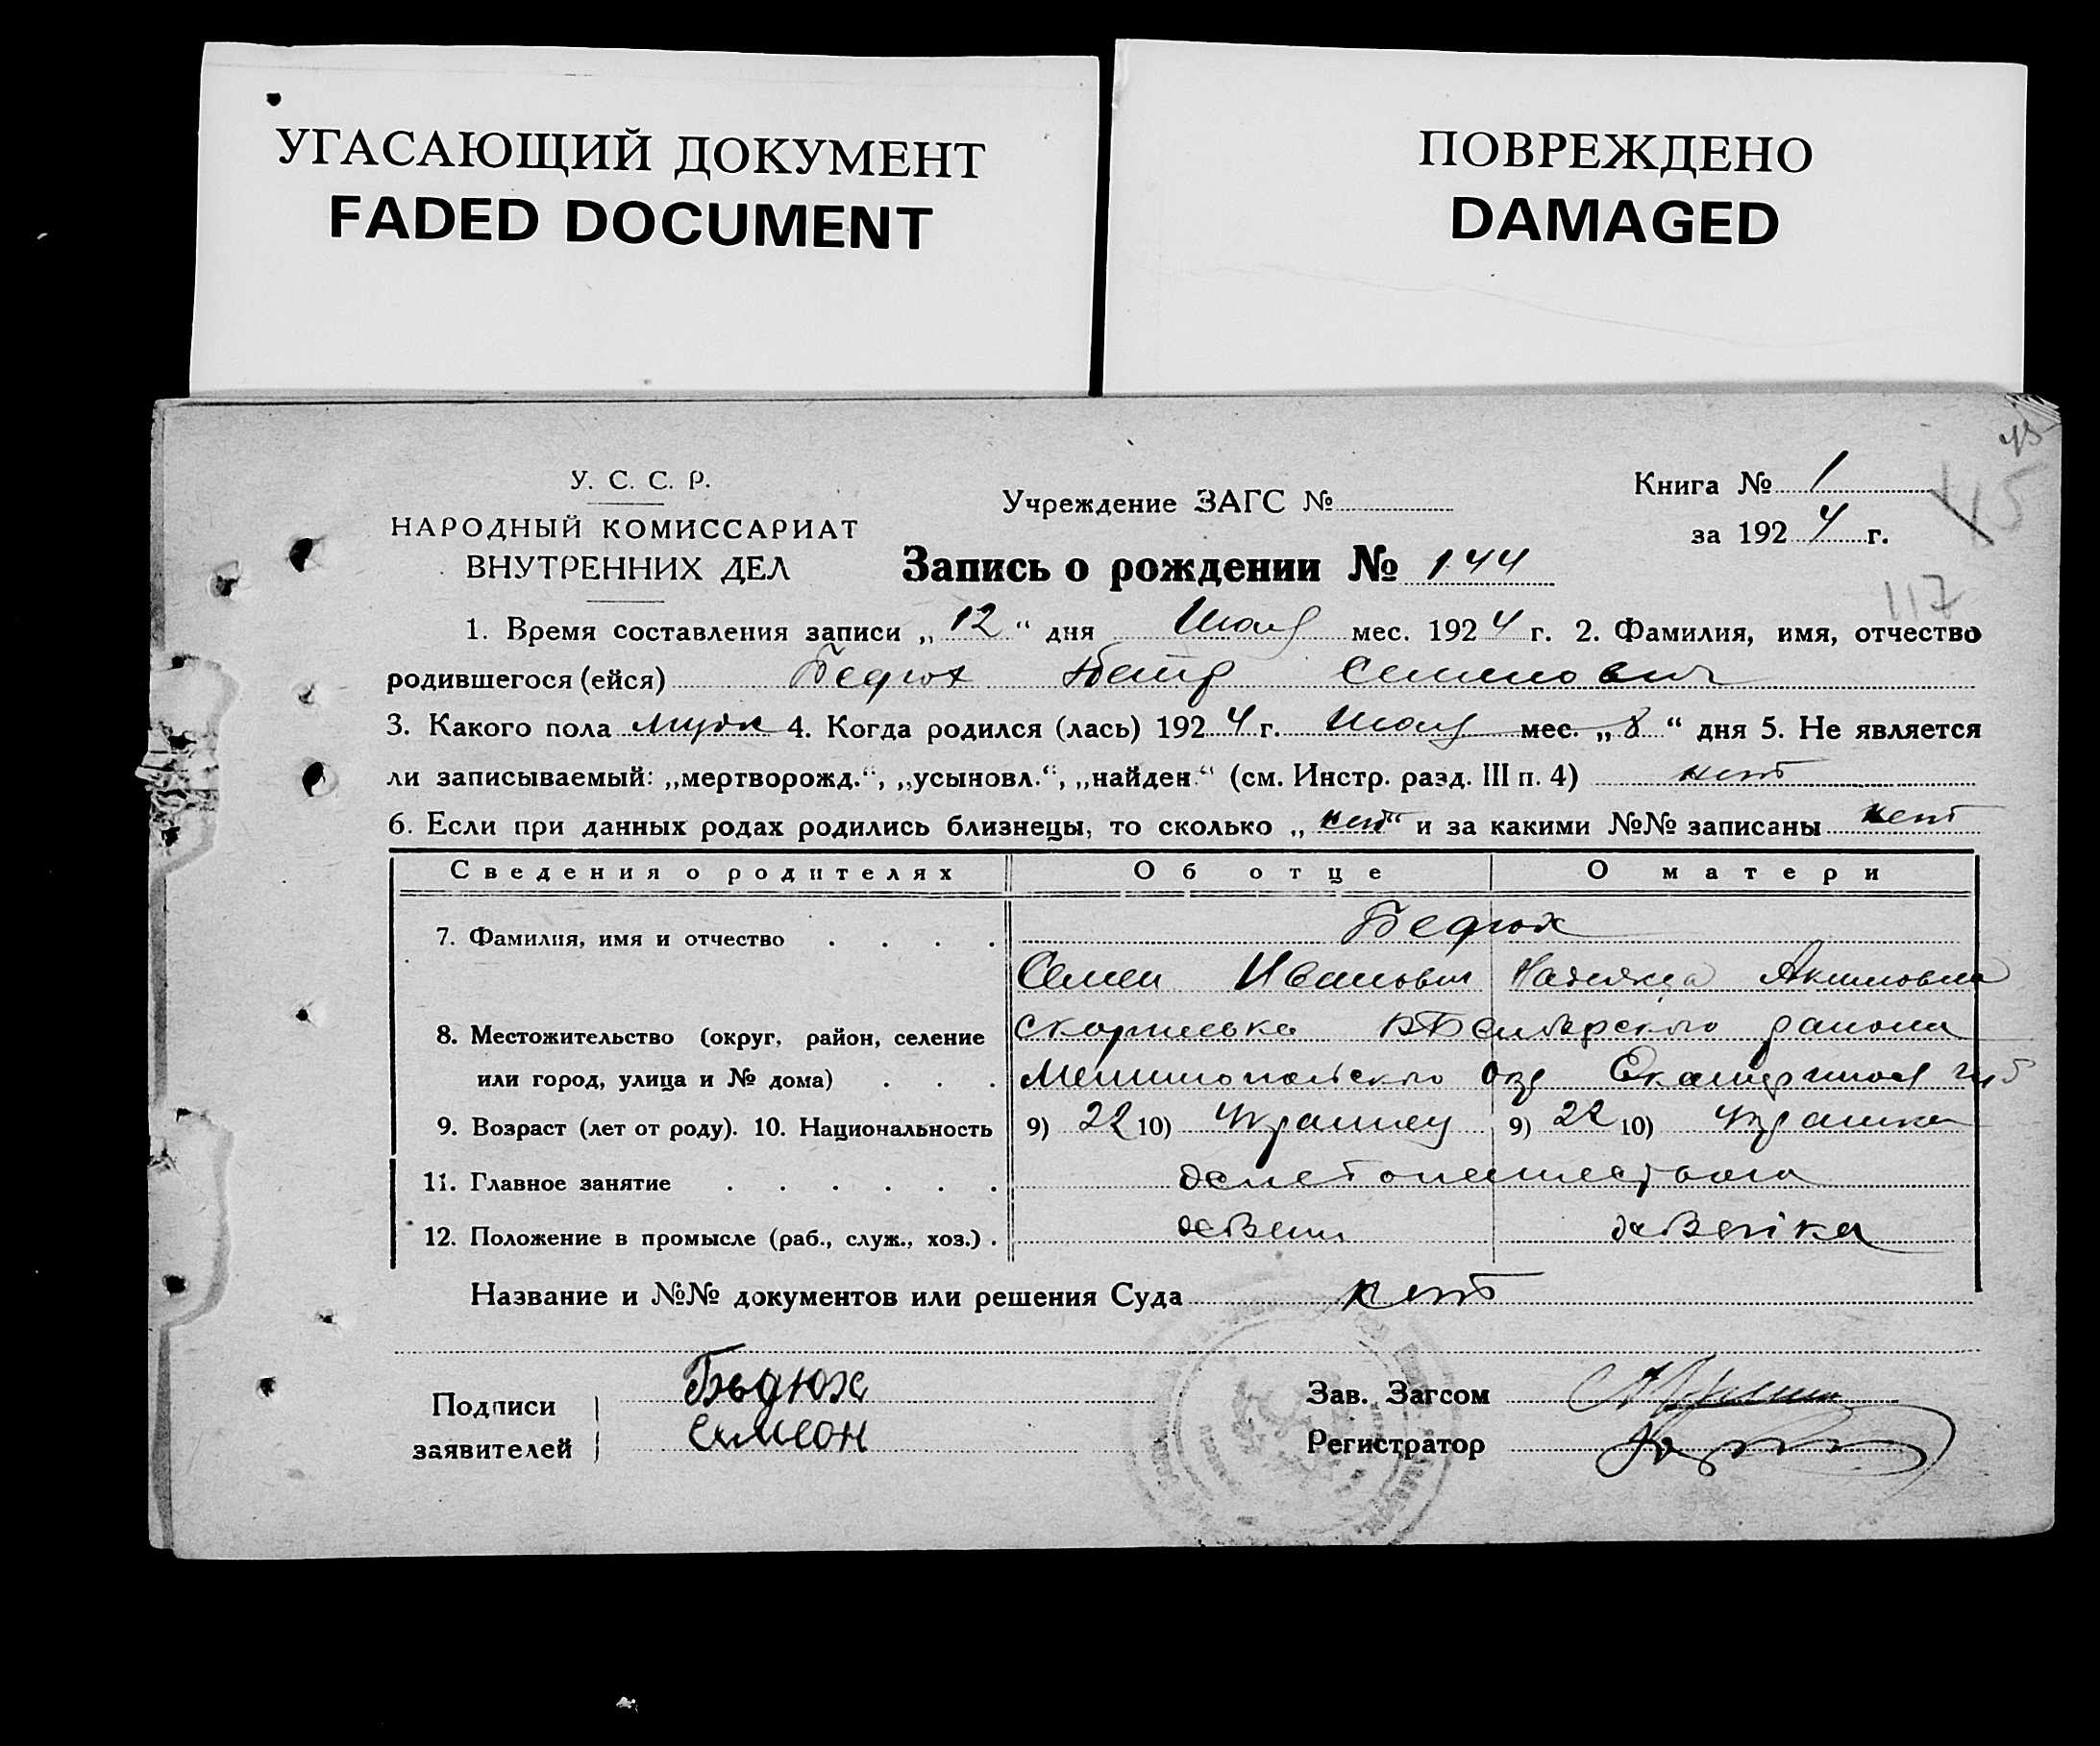 УГАСАЮЩИЙ ДОКУМЕНТ
FADED DOCUMENT
ПОВРЕЖДЕНО
DAMAGED
45
У. С. С. Р.
НАРОДНЫЙ КОМИССАРИАТ
ВНУТРЕННИХ ДЕЛ
Учреждение ЗАГС №
Книга № 1
за 1924 г.
45
Запись о рождении № 144
117
1. Время составления записи „12“ дня Июля мес. 1924 г. 2. Фамилия, имя, отчество
родившегося (ейся) Бедюх Петр Семенович
3. Какого пола мужс 4. Когда родился (лась) 1924 г. Июля мес. „8“ дня 5. Не является
ли записываемый: „мертворожд.“, „усыновл.“, „найден.“ (см. Инстр. разд. III п. 4) нет
6. Если при данных родах родились близнецы, то сколько „нет“ и за какими №№ записаны нет
Сведения о родителях Об отце О матери
7. Фамилия, имя и отчество . . . . Бедюх
Семен Иванович Надежда Акимовна
8. Местожительство (округ, район, селение района
или город, улица и № дома) . . . Мелитопольского окр Екатеринос губ
9. Возраст (лет от роду). 10. Национальность 9) 22 10) Украинец 9) 22 10) Украинка
11. Главное занятие . . . . . .
12. Положение в промысле (раб., служ., хоз.) .
Название и №№ документов или решения Суда нет
Подписи
заявителей
Бьдюх
Симеон
Зав. Загсом
Регистратор